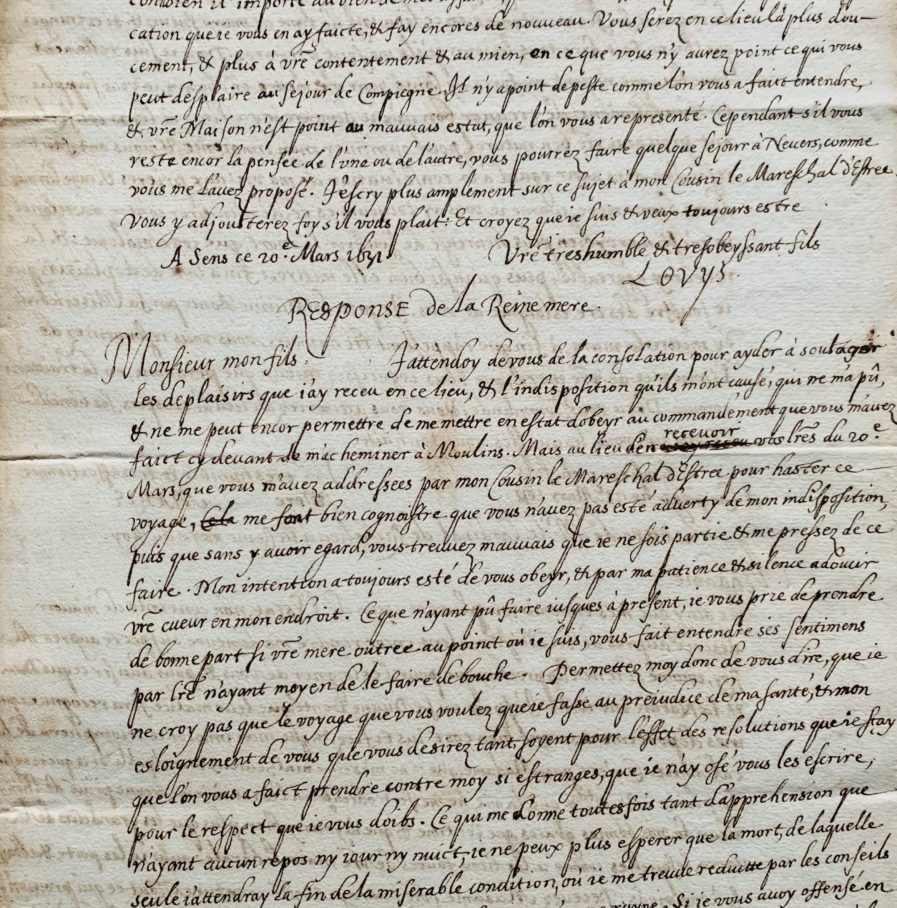 combien il importe au bien de mes
cation que ie vous en ay faicte, & fay encores de nouveau. Vous serez en ce lieu là plus dou-
cement, & plus à vr̃e contentement & au mien, en ce que vous n'y aurez point ce qui vous
peut desplaire au sejour de Compiegne. Il n'y a point de peste comme l'on vous a faict entendre,
& vr̃e Maison n'est point au mauvais estat, que l'on vous a representé. Cependant s'il vous
reste encor la pensée de l'une ou de l'autre, vous pourrez faire quelque sejour à Nevers, comme
vous me l'avez proposé. J'escry plus amplement sur ce sujet à mon Cousin le Mareschal d'Estree.
Vous y adjousterez foy s'il vous plait: Et croyez que ie suis & veux toujours estre
A Sens ce 20.e Mars 1631 Vr̃e treshumble & tresobeyssant fils
LOVYS
RESPONSE de la Reine mere.
Monsieur mon fils. J'attendoy de vous de la consolation pour ayder à soulager
les deplaisirs que i'ay receu en ce lieu, & l'indisposition qu'ils m'ont causé, qui ne m'a pû,
& ne me peut encor permettre de me mettre en estat d'obeyr au commandement que vous m'avez
faict cy devant de m'acheminer à Moulins. Mais au lieu d'en recevoir vos lr̃es du 20.e
Mars, que vous m'avez addressées par mon Cousin le Mareschal d'Estree pour haster ce
voyage, Cela me font bien cognoistre que vous n'avez pas esté adverty de mon indisposition,
puis que sans y avoir egard, vous treuvez mauvais que ie ne sois partie, & me pressez de ce
faire. Mon intention a toujours esté de vous obeyr, & par ma patience & silence adoucir
vr̃e cueur en mon endroit. Ce que n'ayant pû faire iusques à present, ie vous prie de prendre
de bonne part si vr̃e mere outree au poinct où ie suis, vous fait entendre ses sentimens
par lr̃e n'ayant moyen de le faire de bouche. Permettez moy donc de vous dire, que ie
ne croy pas que le voyage que vous voulez que ie fasse au prejudice de ma santé, & mon
esloignement de vous que vous desirez tant, soyent pour l'effect des resolutions que ie sçay
que l'on vous a faict prendre contre moy si estranges, que ie n'ay osé vous les escrire,
pour le respect que ie vous doibs. Ce qui me donne toutesfois tant d'apprehension que
n'ayant aucun repos ny iour ny nuict, ie ne peux plus esperer que la mort, de laquelle
seule i'attendray la fin de la miserable condition, où ie me treuve reduitte par les conseils
Si je vous avoy offensé en